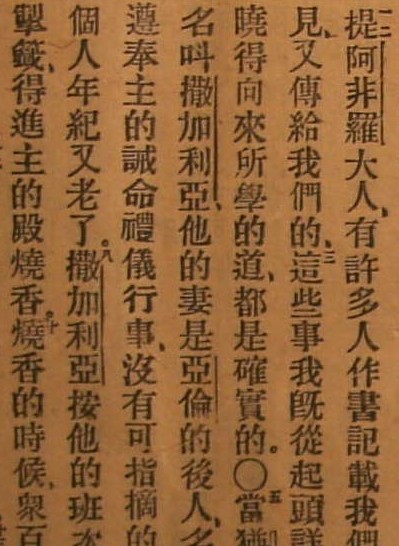 提阿非羅大人、有許多人作書記載我們
見、又傳給我們的、三這些事我旣從起頭詳
曉得向來所學的道、都是確實的。〇五當猶
名叫撒加利亞、他的妻是亞倫的後人、名
遵奉主的誡命禮儀行事、沒有可指摘的
個人年紀又老了。八撒加利亞按他的班次
掣籤、得進主的殿燒香。十燒香的時候、衆百